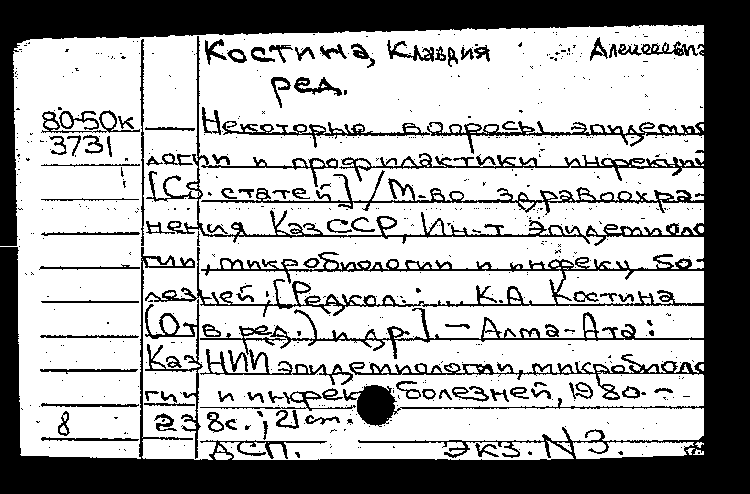 Костина, Клавдия Алексеевна
ред.
80-50к Некоторые вопросы эпидемио
3731 логии и профилактики инфекций
[Сб. статей] / М-во здравоохра-
нения КазССР, Ин-т эпидемиоло
гии, микробиологии и инфекц. бо-
лезней; [Редкол.: ... К.А. Костина
(Отв. ред.) и др.]. - Алма-Ата:
КазНИИ эпидемиологии, микробиоло
гии и инфек болезней, 1980. -
8 238с.; 21см.
ДСП. Экз. N 3.